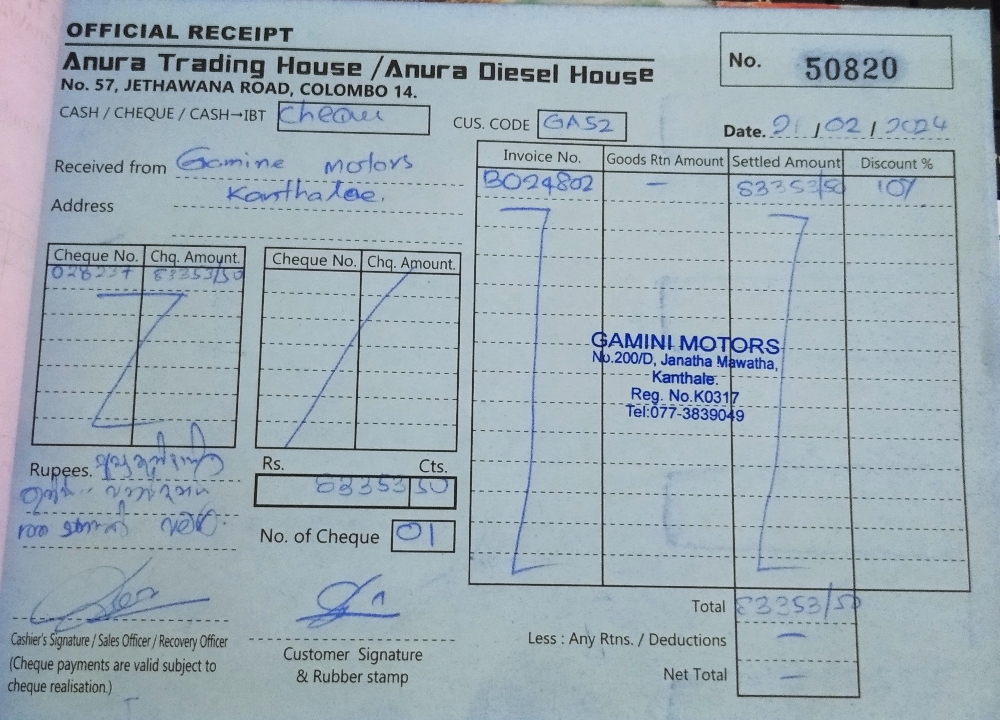 OFFICIAL RECEIPT
Anura Trading House / Anura Diesel House
No. 57, JETHAWANA ROAD, COLOMBO 14.
No. 50820
CASH / CHEQUE / CASH→IBT cheque
CUS. CODE GA52
Date. 21 / 02 / 2024
Received from Gamine motors
Address Kanthalae.
Invoice No. Goods Rtn Amount Settled Amount Discount %
B024802 — 83353/50 10%
Cheque No. Chq. Amount.
028237 83353/50
Cheque No. Chq. Amount.
GAMINI MOTORS
No.200/D, Janatha Mawatha,
Kanthale.
Reg. No.K0317
Tel:077-3839049
Rupees.
Rs. Cts.
83353 50
No. of Cheque 01
Total 83353/50
Less : Any Rtns. / Deductions —
Net Total —
Cashier's Signature / Sales Officer / Recovery Officer
(Cheque payments are valid subject to
cheque realisation.)
Customer Signature
& Rubber stamp